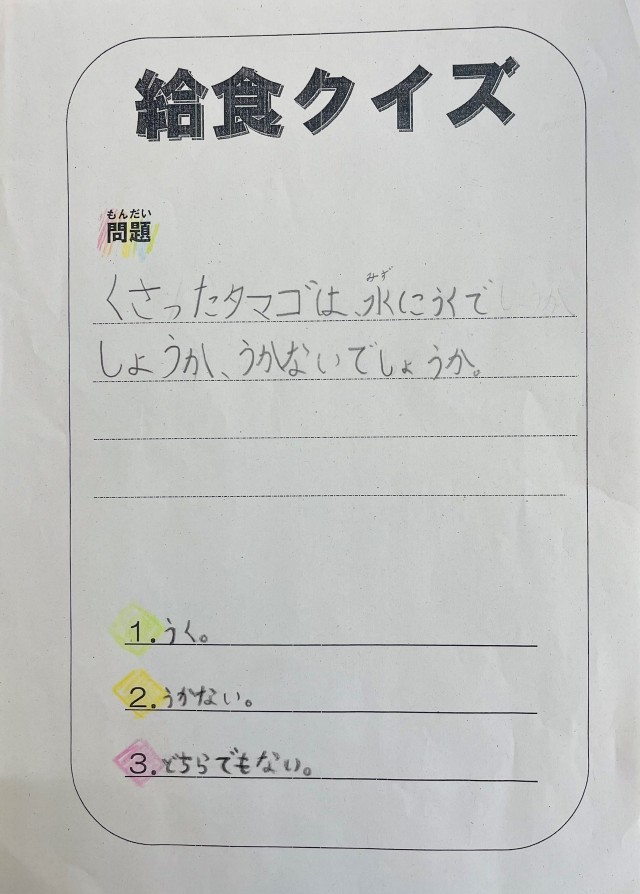 給食クイズ
もんだい
問題
みず
くさったタマゴは、水にうくで
しょうか、うかないでしょうか。
1. うく。
2. うかない。
3. どちらでもない。